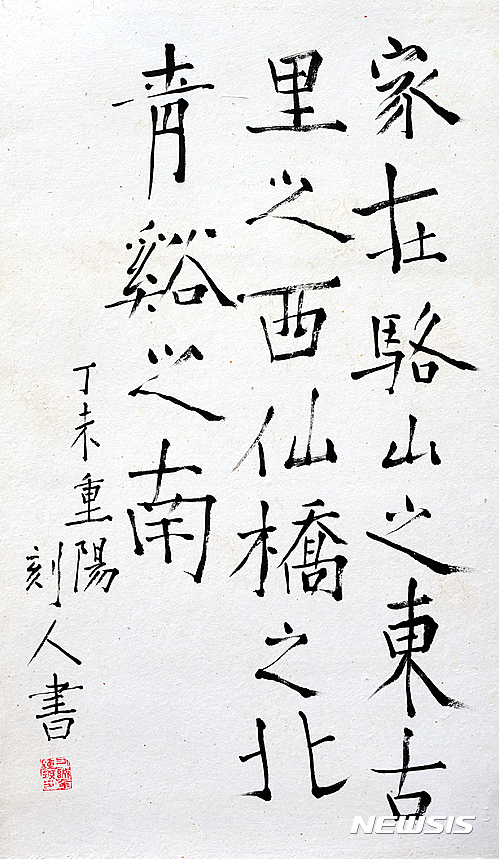 家在駱山之東古
里之西仙橋之北
靑谿之南
丁未重陽
刻人書
NEWSIS